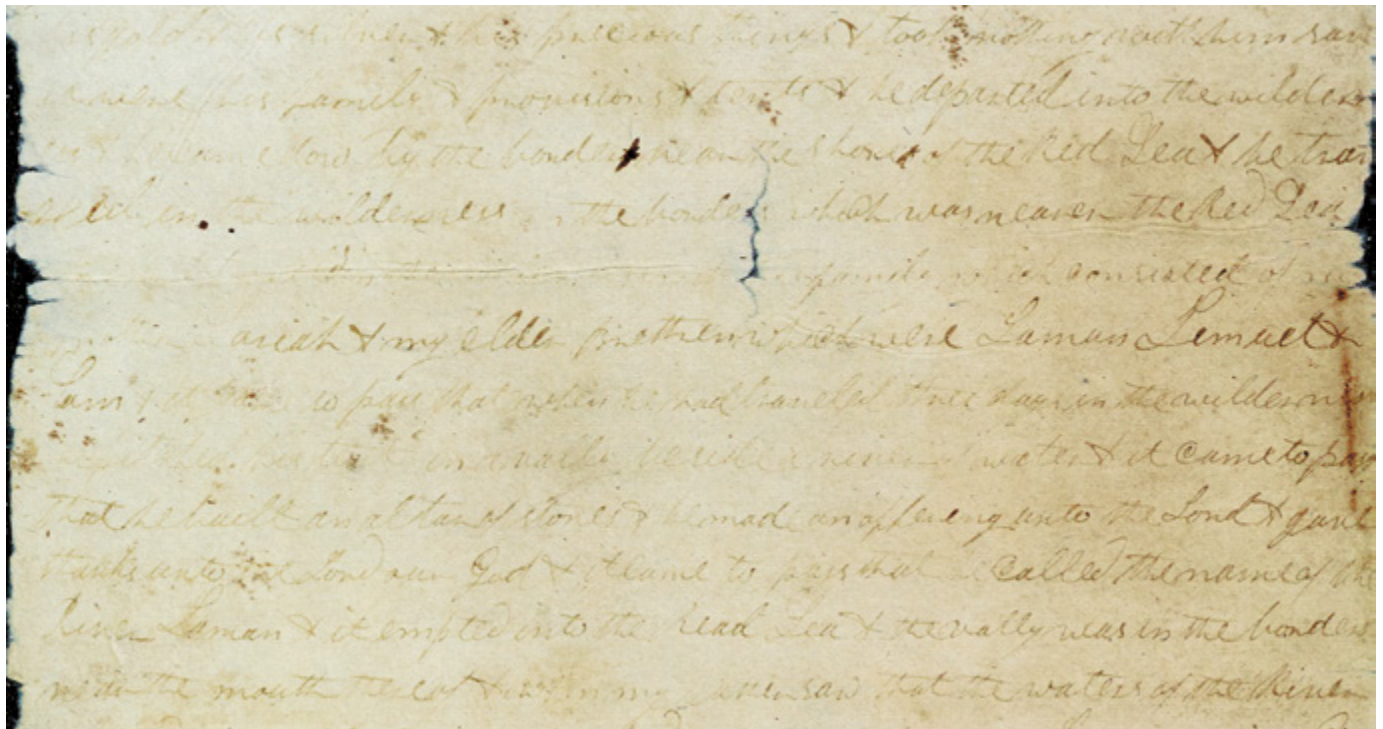 his gold & his silver & his precious things & took nothing with him save
it were his family & provisions & tents & he departed into the wilder
ness & he came down by the borders near the shores of the Red Sea & he trav
eled in the wilderness in the borders which was nearer the Red Sea
family which consisted of my
mother Sariah & my elder brethren which were Laman Lemuel &
Sam & it came to pass that when he had traveled three days in the wilderness
he pitched his tent in a vally beside a river of water & it came to pass
that he built an altar of stones & he made an offering unto the Lord & gave
thanks unto the Lord our God & it came to pass that he called the name of the
River Laman & it emptied into the read Sea & the vally was in the borders
near the mouth thereof & when my father saw that the waters of the River